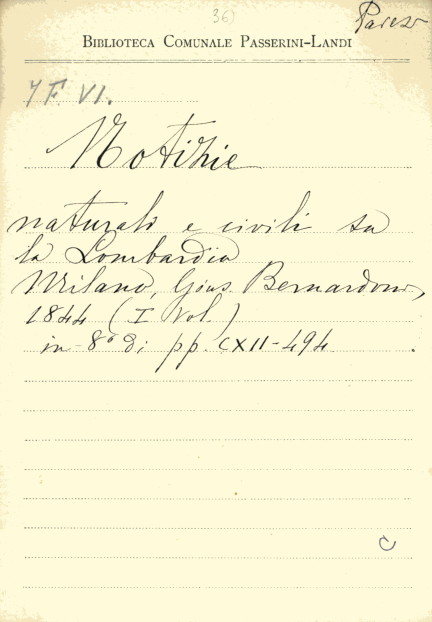 36)
BIBLIOTECA COMUNALE PASSERINI-LANDI
7 F. VI.
Notizie
naturali e civili su
la Lombardia
Milano, Gius. Bernardoni,
1844 (I Vol.)
in 8° di pp. CXII-494.
C